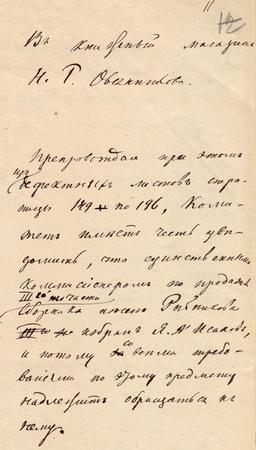 12
Въ книжный магазинъ
Н. Г. Овсянникова.
Препровождая при этомъ
изъ дефектныхъ листовъ стра-
ницы 149 по 196, Коми-
тетъ имѣетъ честь уво-
домить, что единственнымъ
коммисіонеромъ по продажѣ
III го части
Сборника пѣсенъ Рыбникова
избранъ Я. А. Исаковъ,
и потому со всѣми требо-
ваніями по этому предмету
надлежитъ обращаться къ
нему.